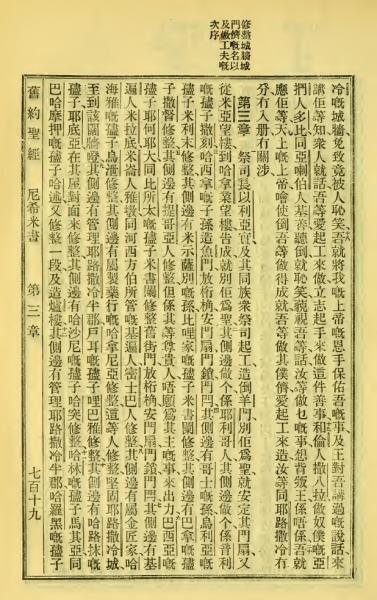 修整城牆城
門儕嘅名以
及繳工夫嘅
次序
冷嘅城牆免致竟被人恥笑吾就將我嘅上帝嘅恩手保佑吾嘅事及王對吾講過嘅說話來
講佢等知衆人就話吾等愛起工來做立志起手來做這件善事和倫人撒八拉做奴僕嘅亞
捫人多比同亞喇伯人基善聽倒就恥笑藐視吾等話汝等做乜嘅事想背叛王係唔係吾就
應佢等天上嘅上帝噲使倒吾等做得成就吾等做其僕儕愛起工來造汝等同耶路撒冷有
分有入册有關涉
第三章 祭司長以利亞實及其同族衆祭司起工造倒羊門別佢爲聖就安定其門扇又
從米亞望樓到哈拿業望樓告成就別佢爲聖其側邊做个係耶利哥人其側邊做个係音利
嘅孻子撒刻哈西拿嘅子孫造魚門放桁桷安門扇門鎖門閂其側邊有哥士嘅孫烏利亞嘅
孻子米利末修整其側邊有米示薩別嘅孫比哩家嘅孻子米書闌修整其側邊有巴拿嘅孻
子撒督修整其側邊有提哥亞人修整但係其等尊貴人唔願爲其主嘅事來出力巴西亞嘅
孻子耶何耶大同比所大嘅孻子米書闌修整舊街門放桁桷安門扇門鎖門閂其側邊有基
遍人米拉底米崙人雅墩同河西方伯所管嘅基遍人密士巴人修整其側邊有屬金匠家哈
海雅嘅孻子烏泄修整其側邊有屬製藥行嘅哈拿尼亞修整這等人修整堅固耶路撒冷城
至到該闊牆磴其側邊有管理耶路撒冷半郡戶耳嘅孻子哩巴雅修整其側邊有哈路抹嘅
孻子耶底亞在其屋對面來修整其側邊有哈沙尼嘅孻子哈突修整哈林嘅孻子馬其亞同
巴哈摩押嘅孻子哈述又修整一段及造爐樓其側邊有管理耶路撒冷半郡哈羅黑嘅孻子
舊約聖經 尼希米書 第三章 七百十九